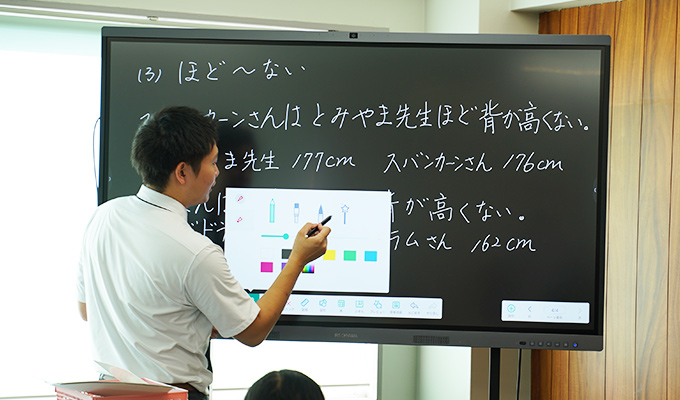 (3) ほど〜ない
ス ンカーンさんは とみやま先生ほど背が高くない。
ま先生 177cm スバンカーンさん 176cm
んは 背が高くない。
ラムさん 162cm